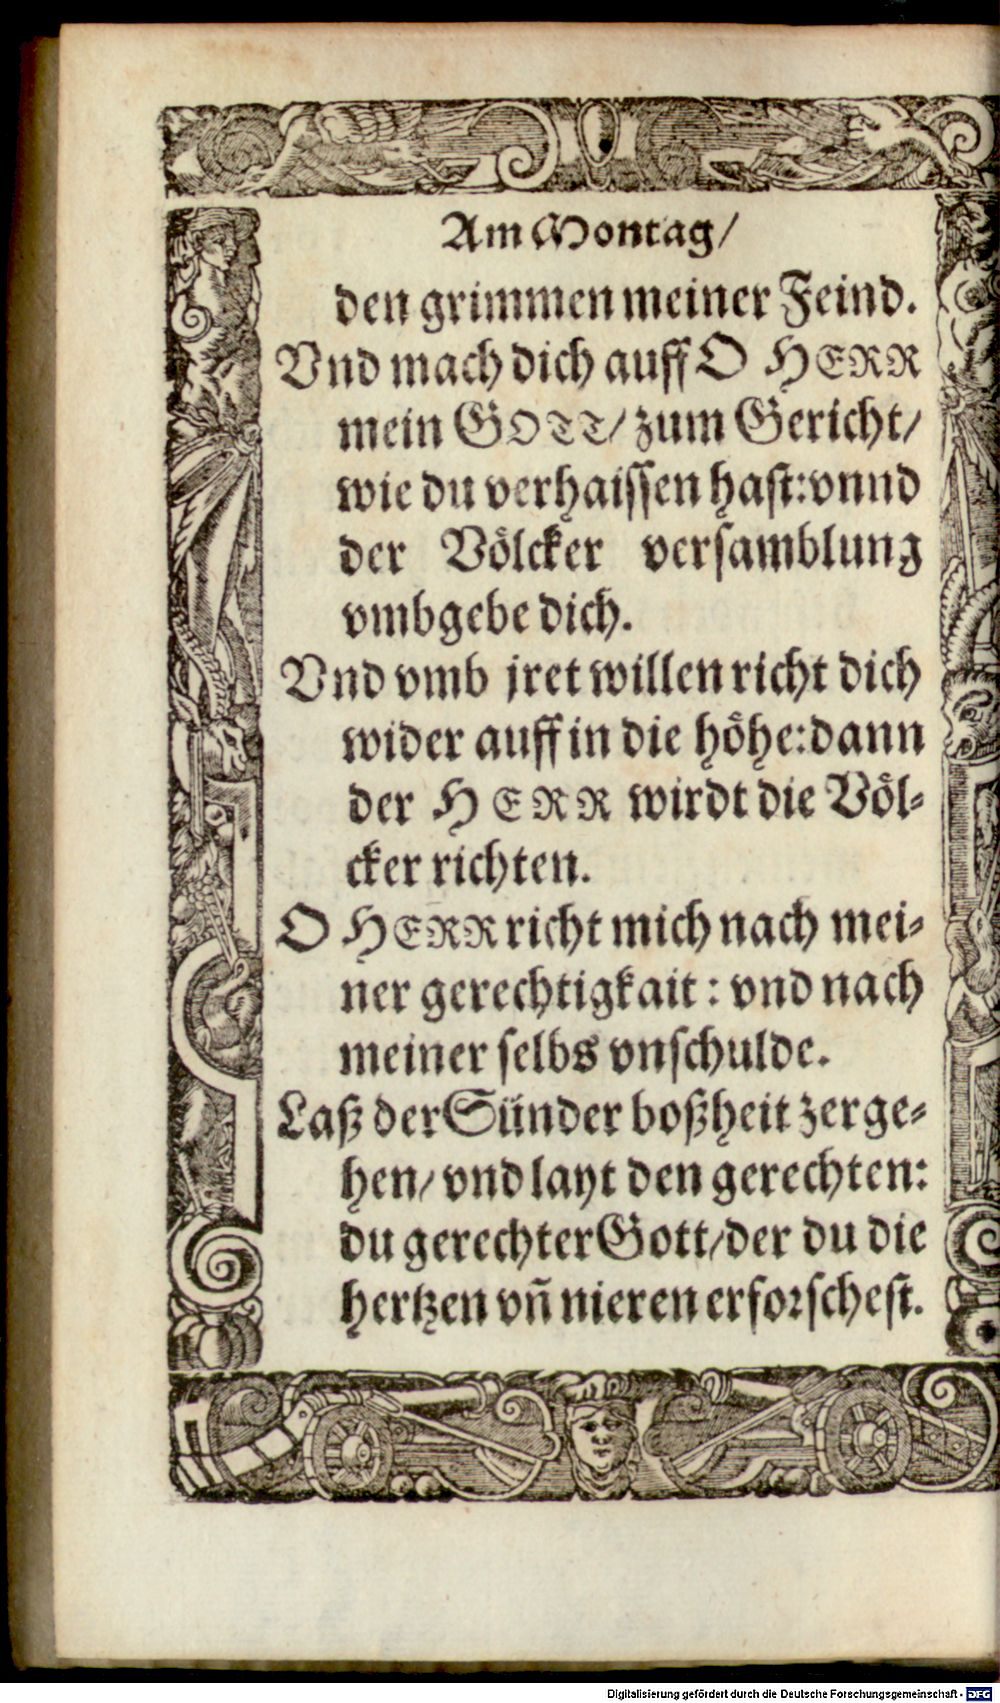 Am Montag/
den grimmen meiner Feind.
Vnd mach dich auff O HERR
mein GOTT/ zum Gericht/
wie du verhaissen hast: vnnd
der Völcker versamblung
vmbgebe dich.
Vnd vmb jret willen richt dich
wider auff in die höhe: dann
der HERR wirdt die Völ⸗
cker richten.
O HERR richt mich nach mei⸗
ner gerechtigkait : vnd nach
meiner selbs vnschulde.
Laß der Sünder boßheit zerge⸗
hen/ vnd layt den gerechten:
du gerechter Gott/ der du die
hertzen vñ nieren erforschest.
Digitalisierung gefördert durch die Deutsche Forschungsgemeinschaft - DFG